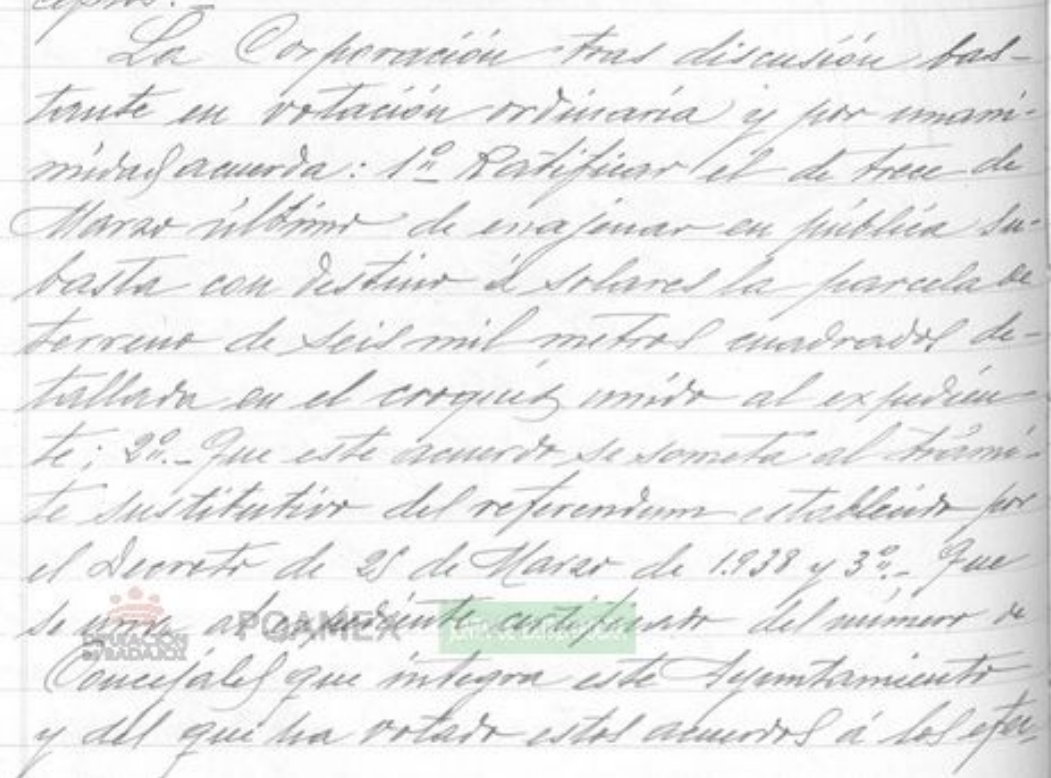 ceptos.-
La Corporación tras discusión bas-
tante en votación ordinaria y por unani-
midad acuerda: 1º Ratificar el de trece de
Marzo último de enajenar en pública su-
basta con destino á solares la parcela de
terreno de seis mil metros cuadrados de-
tallada en el croquis unido al expedien-
te; 2º.- Que este acuerdo se someta al trámi-
te sustitutivo del referendum establecido por
el Decreto de 25 de Marzo de 1.938 y 3º.- Que
se una al expediente certificado del número de
DIPUTACIÓN
DE BADAJOZ
PGAMEX
JUNTA DE EXTREMADURA
Concejales que integra este Ayuntamiento
y del que ha votado estos acuerdos á los efec-